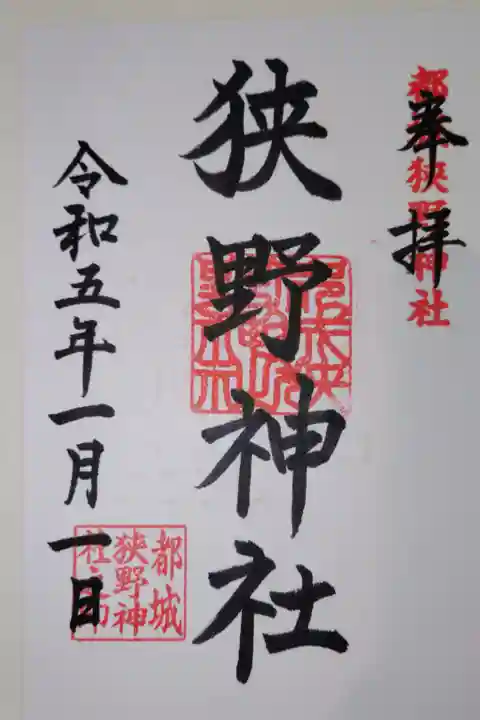 奉拝
都城狭野神社
狭野神社
令和五年一月一日
都城
狭野神
社